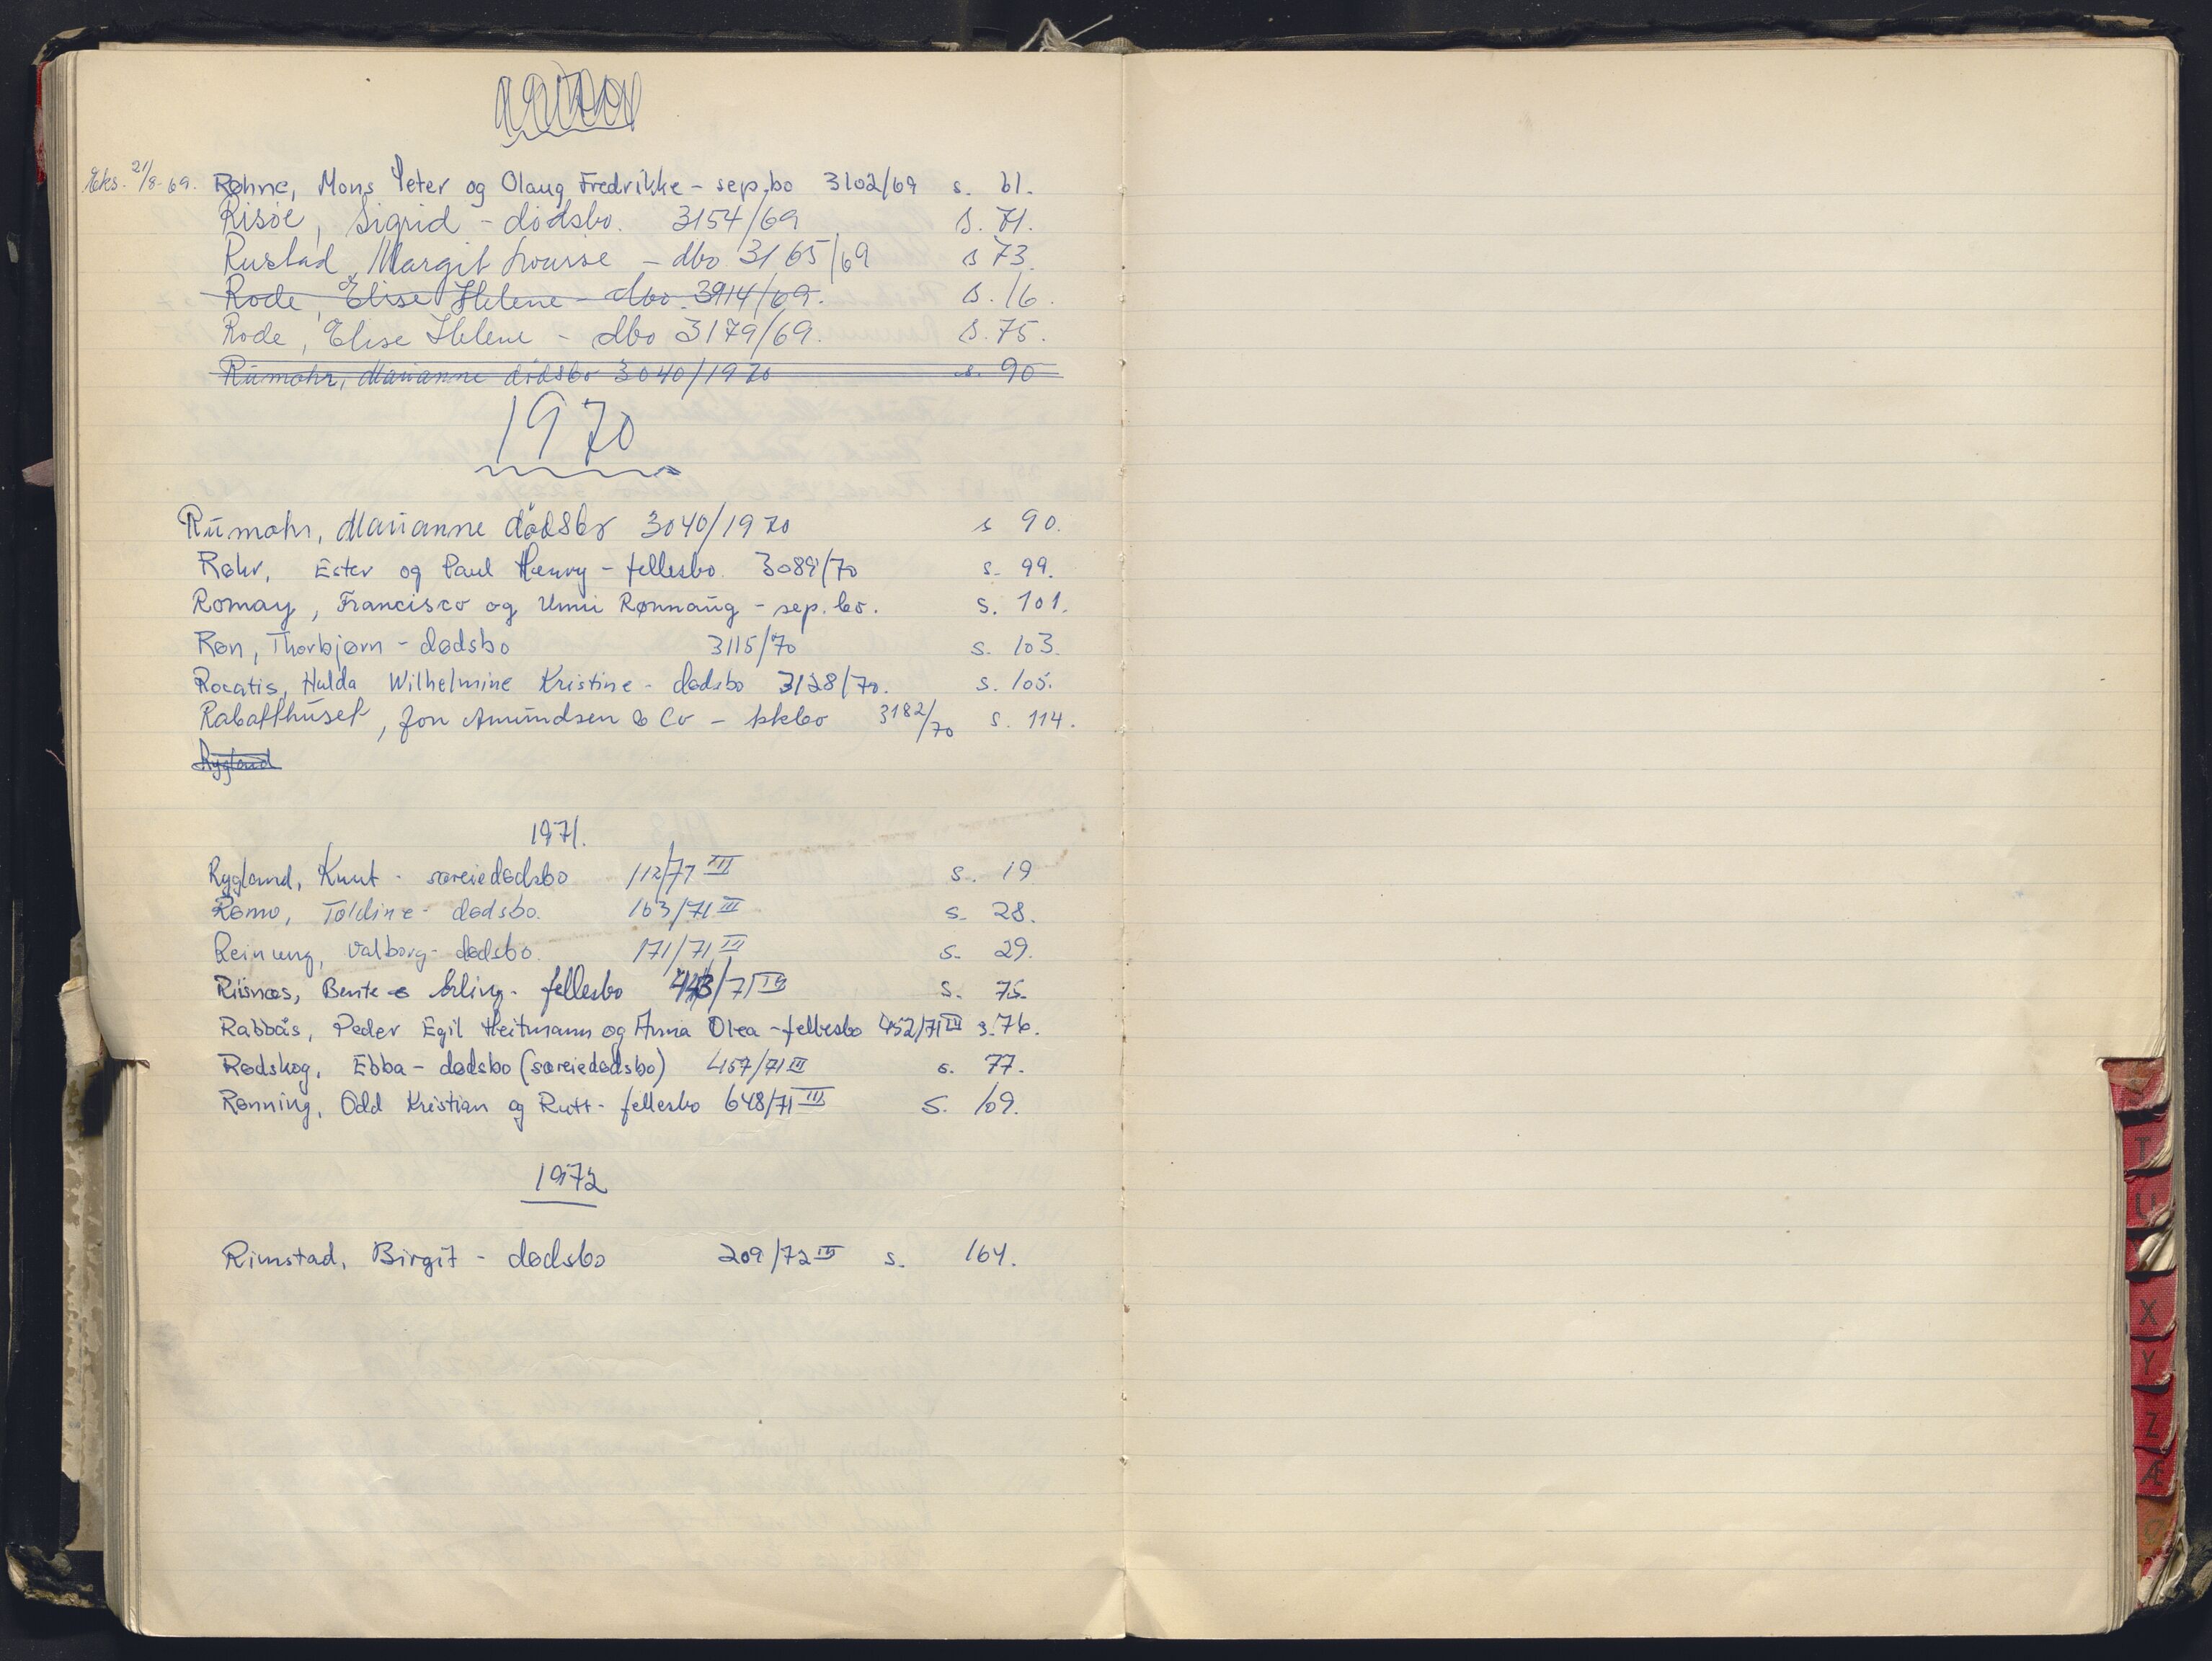 Eks. 21/8-69. Røhne, Mons Peter og Olaug Fredrikke - sep.bo 3102/69 s. 61.
Risöe, Sigrid - dödsbo. 3154/69 s. 71.
Rustad, Margit Louise - dbo 3165/69 s 73.
Rode, Elise Helene - dbo. 3914/69. s. 16.
Rode, Elise Helene - dbo 3179/69. s. 75.
Rumohr, Marianne dödsbo 3040/1970 s. 90
1970
Rumohr, Marianne dödsbo 3040/1970 s 90.
Røhr, Ester og Paul Henry - fellesbo. 3089/70 s. 99.
Romay, Francisco og Unni Rønnaug - sep. bo. s. 101.
Røn, Thorbjørn - dødsbo 3115/70 s. 103.
Rocatis, Hulda Wilhelmine Kristine - dødsbo 3128/70. s. 105.
Rabatthuset, Jon Amundsen & Co - kkbo 3182/70 s. 114.
Rygland
1971.
Rygland, Knut - særeiedødsbo 112/71 III s. 19
Rømo, Toldine - dødsbo. 163/71 III s. 28.
Reinung, Valborg - dødsbo. 171/71 III s. 29.
Riisnæs, Bente & Erling - fellesbo 443/71 III s. 75.
Rabbås, Peder Egil Heitmann og Anna Olea - fellesbo 452/71 III s. 76.
Rødskog, Ebba - dødsbo (særeiedødsbo) 457/71 III s. 77.
Rønning, Odd Kristian og Rutt - fellesbo 648/71 III s. 109.
1972
Rimstad, Birgit - dødsbo 209/72 III s. 164.
T
U
X
Y
Z
Æ
Ø